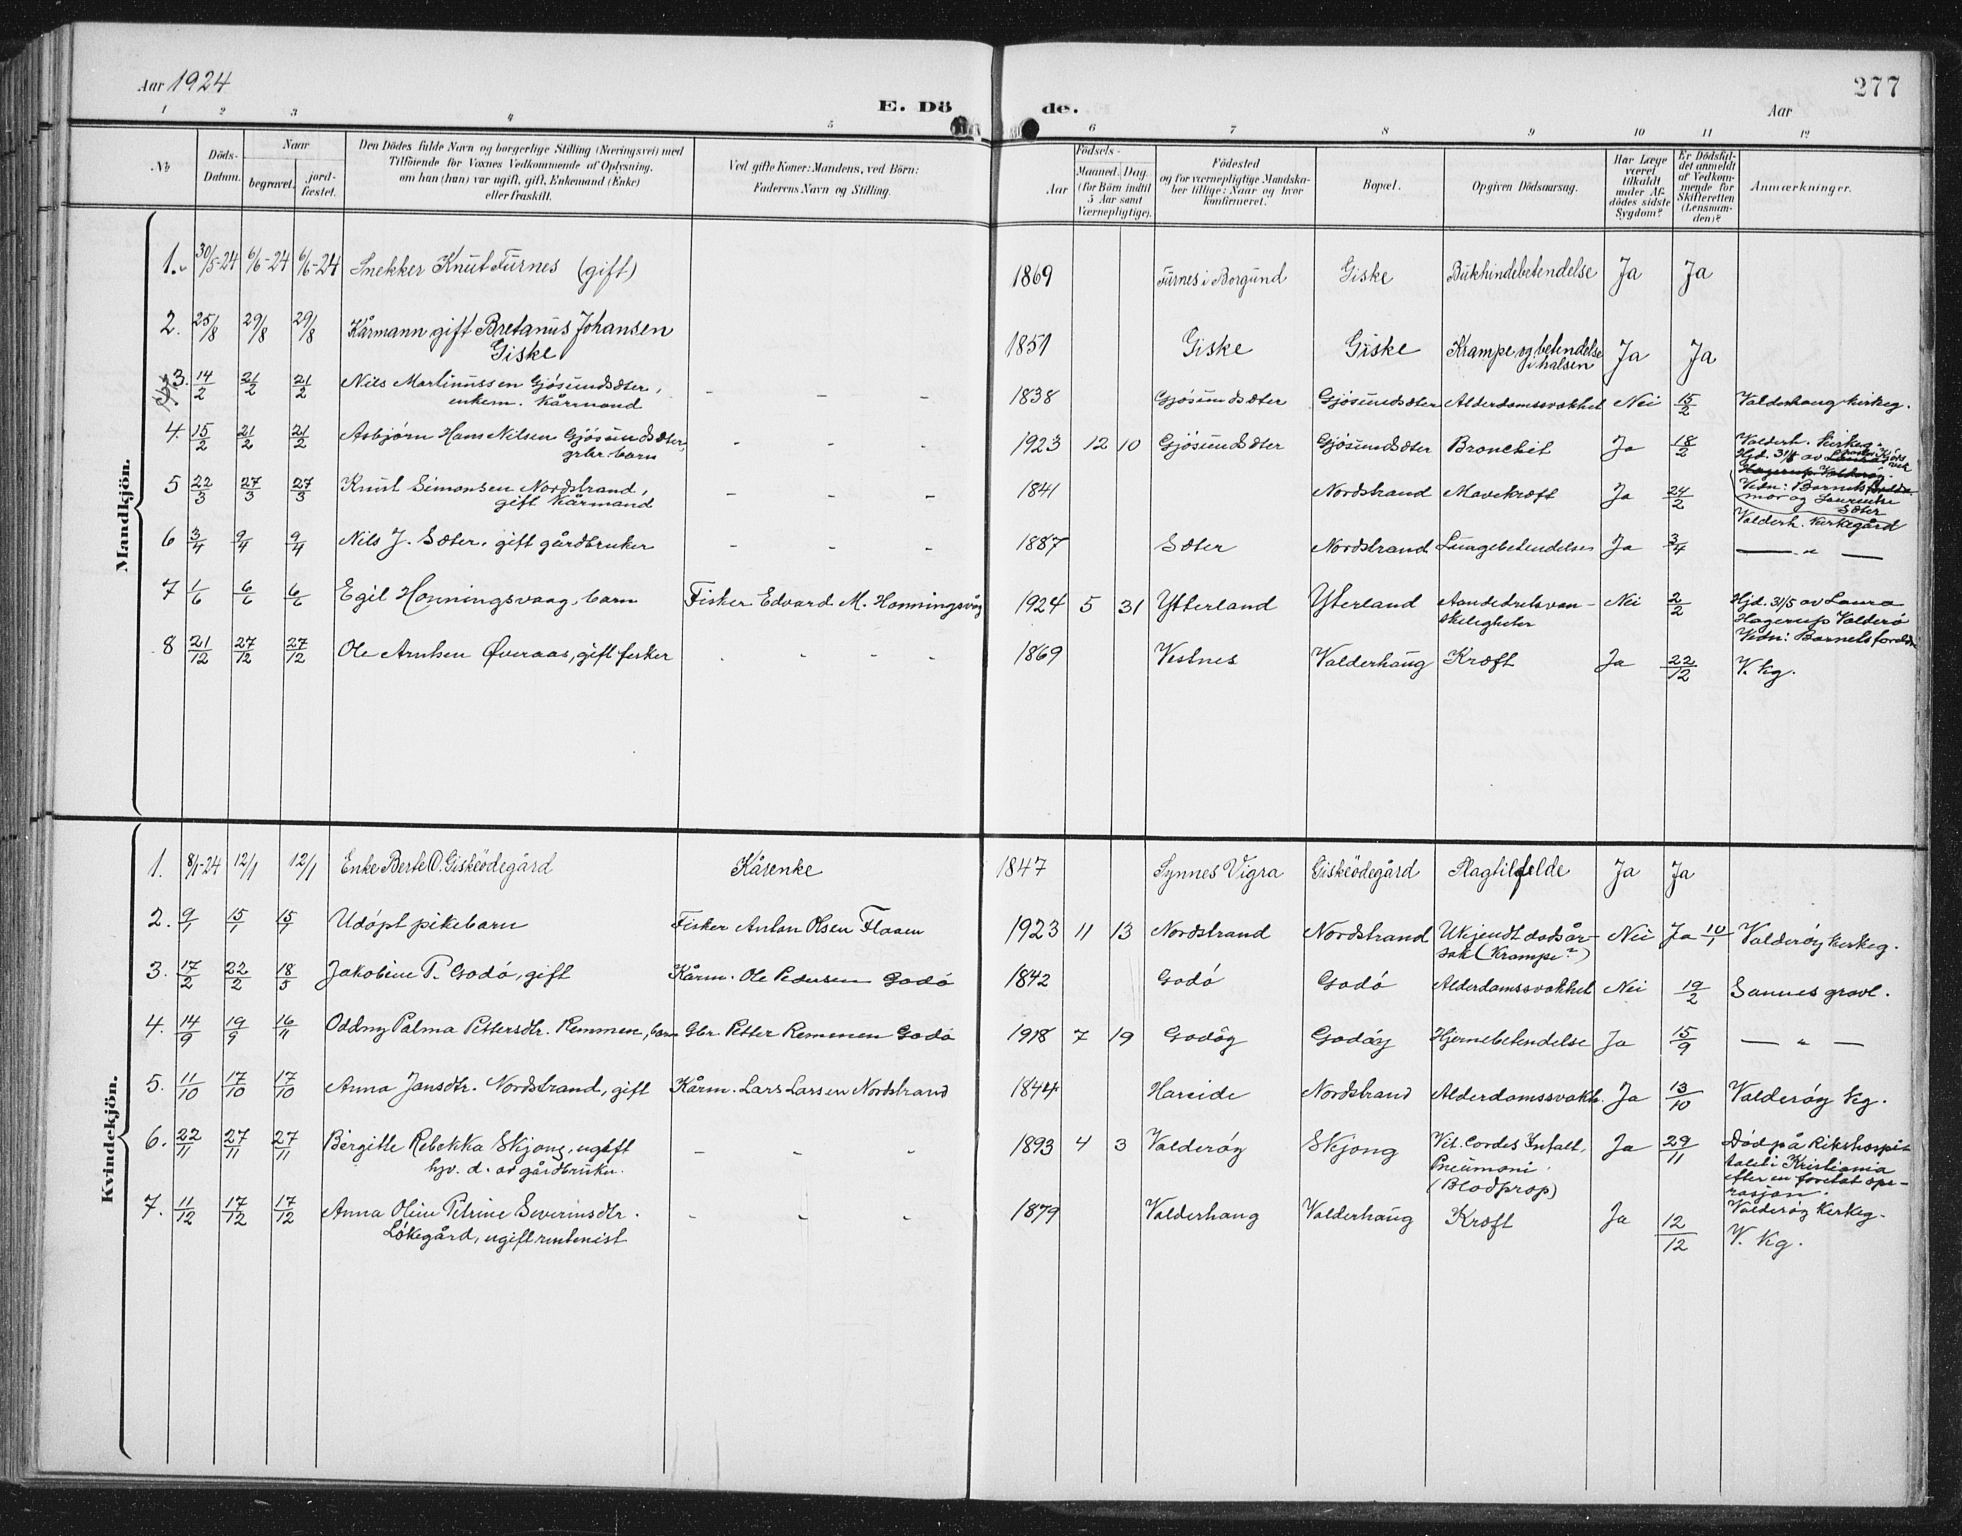 Aar 1924
E. Dö de.
Aar
277
1 2 3 4 5 6 7 8 9 10 11 12
No
Döds-Datum.
Naar
begravet.
jord-fæstet.
Den Dödes fulde Navn og borgerlige Stilling (Næringsvei) med
Tilföiende for Voxnes Vedkommende af Oplysning,
om han (hun) var ugift, gift, Enkemand (Enke)
eller fraskilt.
Ved gifte Koner: Mandens, ved Börn:
Faderens Navn og Stilling.
Födsels-
Aar
Maaned. Dag.
(for Börn indtil
5 Aar samt
Værnepligtige).
Födested
og for værnepligtige Mandska-
ber tillige: Naar og hvor
konfirmeret.
Bopæl.
Opgiven Dödsaarsag.
Har Læge
været
tilkaldt
under Af-
dödes sidste
Sygdom?
Er Dödsfal-
det anmeldt
af Vedkom-
mende for
Skifteretten
(Lensman-
den)?
Anmærkninger.
Mandkjön.
1. 30/5-24 6/6-24 6/6-24 Snekker Knut Furnes (gift) 1869 Furnes i Borgund Giske Bukhindebetendelse Ja Ja
2. 25/8 29/8 29/8 Kårmann gift Bretanus Johansen 1851 Giske Giske Krampe og betendelse Ja Ja
Giske i halsen
3. 14/2 21/2 21/2 Nils Martinussen Gjösundsæter, - - - 1838 Gjösundsæter Gjösundsæter Alderdomssvakhet Nei 15/2 Valderhaug kirkeg.
enkem. Kårmand
4. 15/2 21/2 21/2 Asbjørn Hans Nilsen Gjösundsæter, - - - 1923 12 10 Gjösundsæter Gjösundsæter Bronchit Ja 18/2 Valderh. Kirkeg.
grbr. barn
Hjd. 31/1 av
Hagerup Valderø
Vidn: Barnets
mor og Laurentse
Sæter
5 22/3 27/3 27/3 Knut Simonsen Nordstrand, - - - 1841 Nordstrand Mavekræft Ja 24/2 Valderh. Kirkegård
gift Kårmand
6 3/4 9/4 9/4 Nils J. Sæter, gift gårdbruker - - - 1887 Sæter Nordstrand Lungebetendelse Ja 3/4 — " —
7 1/6 6/6 6/6 Egil Honningsvaag, barn Fisker Edvard M. Honningsvåg 1924 5 31 Ytterland Yterland Aandedretsvan- Nei 2/2 Hjd. 31/5 av Laura
skeligheter Hagerup Valderø
Vidn: Barnets foreldr
8 21/12 27/12 27/12 Ole Arntsen Øveraas, gift fisker - - - - 1869 Vestnes Valderhaug Kræft Ja 22/12 V. kg.
Kvindekjön.
1. 8/1-24 12/1 12/1 Enke Berte O. Giskeödegård Kårenke 1847 Synnes Vigra Giskeödegård Slagtilfelde Ja Ja
2. 9/1 15/1 15/1 Udöpt pikebarn Fisker Anton Olsen Flaaen 1923 11 13 Nordstrand Nordstrand Ukjendt dødsår- Nei Ja 10/1 Valderøy kirkeg.
sak (Krampe?)
3. 17/2 22/2 18/5 Jakobine P. Godö, gift Kårm. Ole Pedersen Godö 1842 Godö Godö Alderdomssvakhet Nei 19/2 Sannes gravl.
4. 14/9 19/9 16/11 Oddny Palma Pettersdtr. Remmen, barn Gbr. Petter Remmen Godö 1918 7 19 Godöy Godöy Hjernebetendelse Ja 15/9 — " —
5. 11/10 17/10 17/10 Anna Jansdtr. Nordstrand, gift Kårm. Lars Larsen Nordstrand 1844 Hareide Nordstrand Alderdomssvakh. Ja 13/10 Valderøy kg.
6. 22/11 27/11 27/11 Bergitte Rebekka Skjong, ugift - - - 1893 4 3 Valderøy Skjong Vit. Cordis Infalt, Ja 29/11 Död på Rikshospi-
hjv. d. av gårdbruker. Pneumoni talet i Kristiania
(Blodprop) efter en foretat ope-
rasjon.
Valderøy kirkeg.
7. 11/12 17/12 17/12 Anna Oline Petrine Severinsdtr. - - - 1879 Valderhaug Valderhaug Kræft Ja 12/12 V. kg.
Løkegård, ugift rentenist